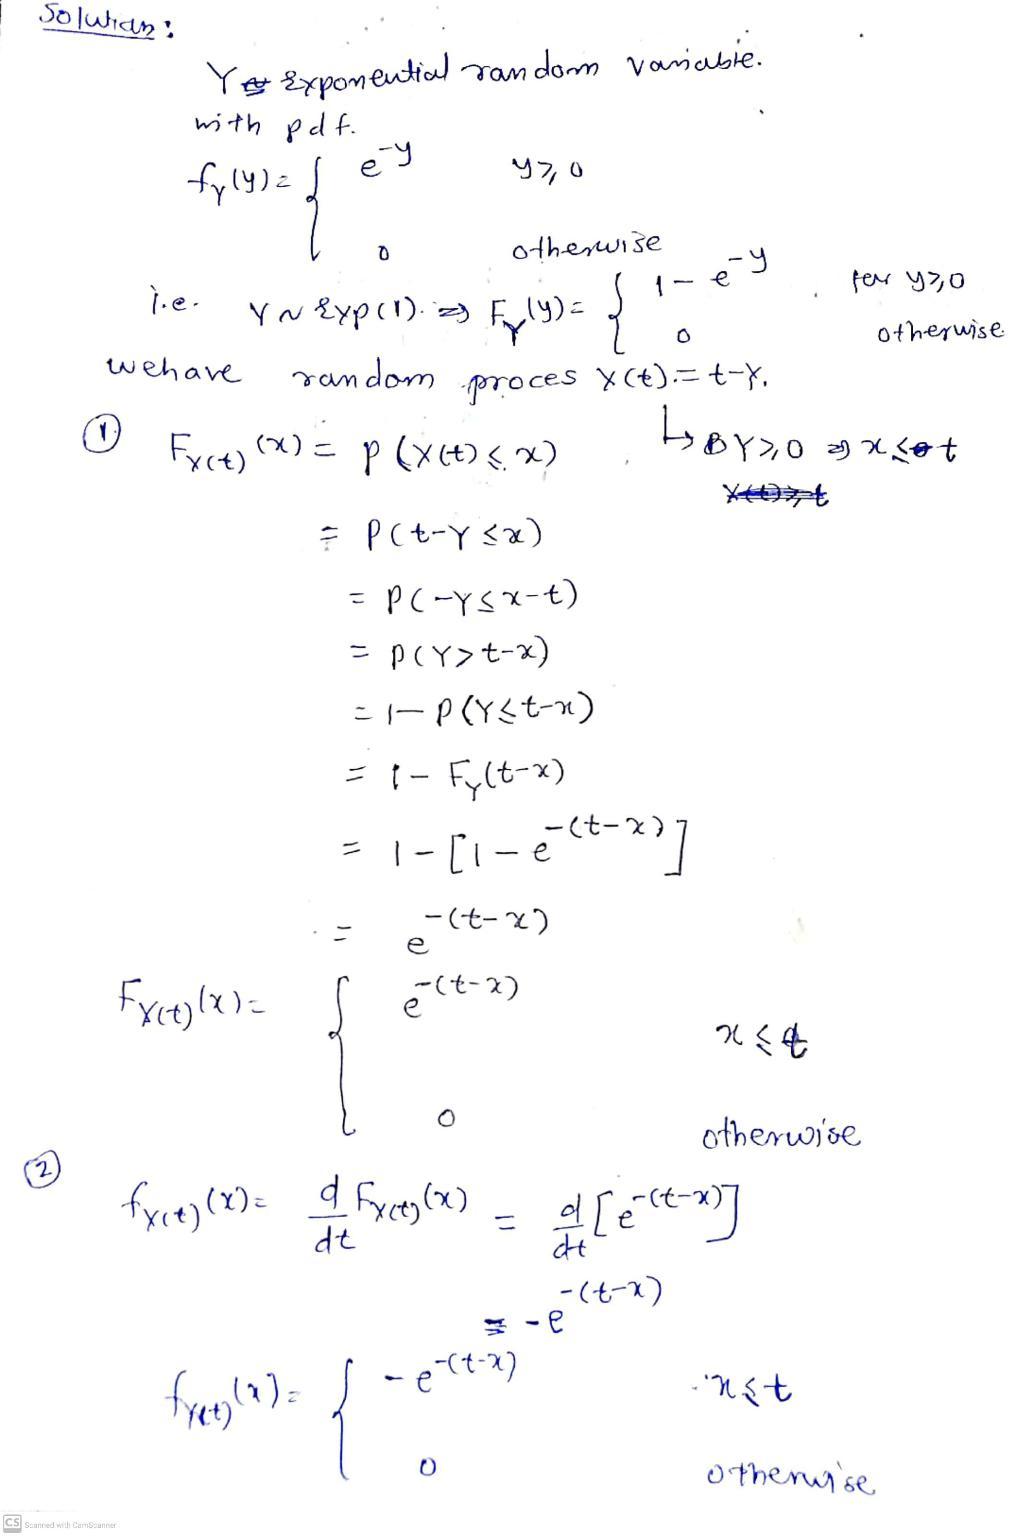 Solution:
Y exponential random variable.
with pdf.
f_Y(y) = { e^-y y ≥ 0
0 otherwise
i.e. Y ~ Exp(1). ⇒ F_Y(y) = { 1 - e^-y for y ≥ 0
0 otherwise
we have random proces X(t) = t - Y.
① F_X(t) (x) = P (X(t) ≤ x) ↳ Y ≥ 0 ⇒ x ≤ t
= P(t-Y ≤ x)
= P(-Y ≤ x-t)
= P(Y > t-x)
= 1 - P(Y ≤ t-x)
= 1 - F_Y(t-x)
= 1 - [1 - e^-(t-x)]
= e^-(t-x)
F_X(t)(x) = { e^-(t-x) x ≤ t
0 otherwise
② f_X(t)(x) = d/dt F_X(t)(x) = d/dt [e^-(t-x)]
= -e^-(t-x)
f_X(t)(x) = { -e^-(t-x) x ≤ t
0 otherwise
CS Scanned with CamScanner